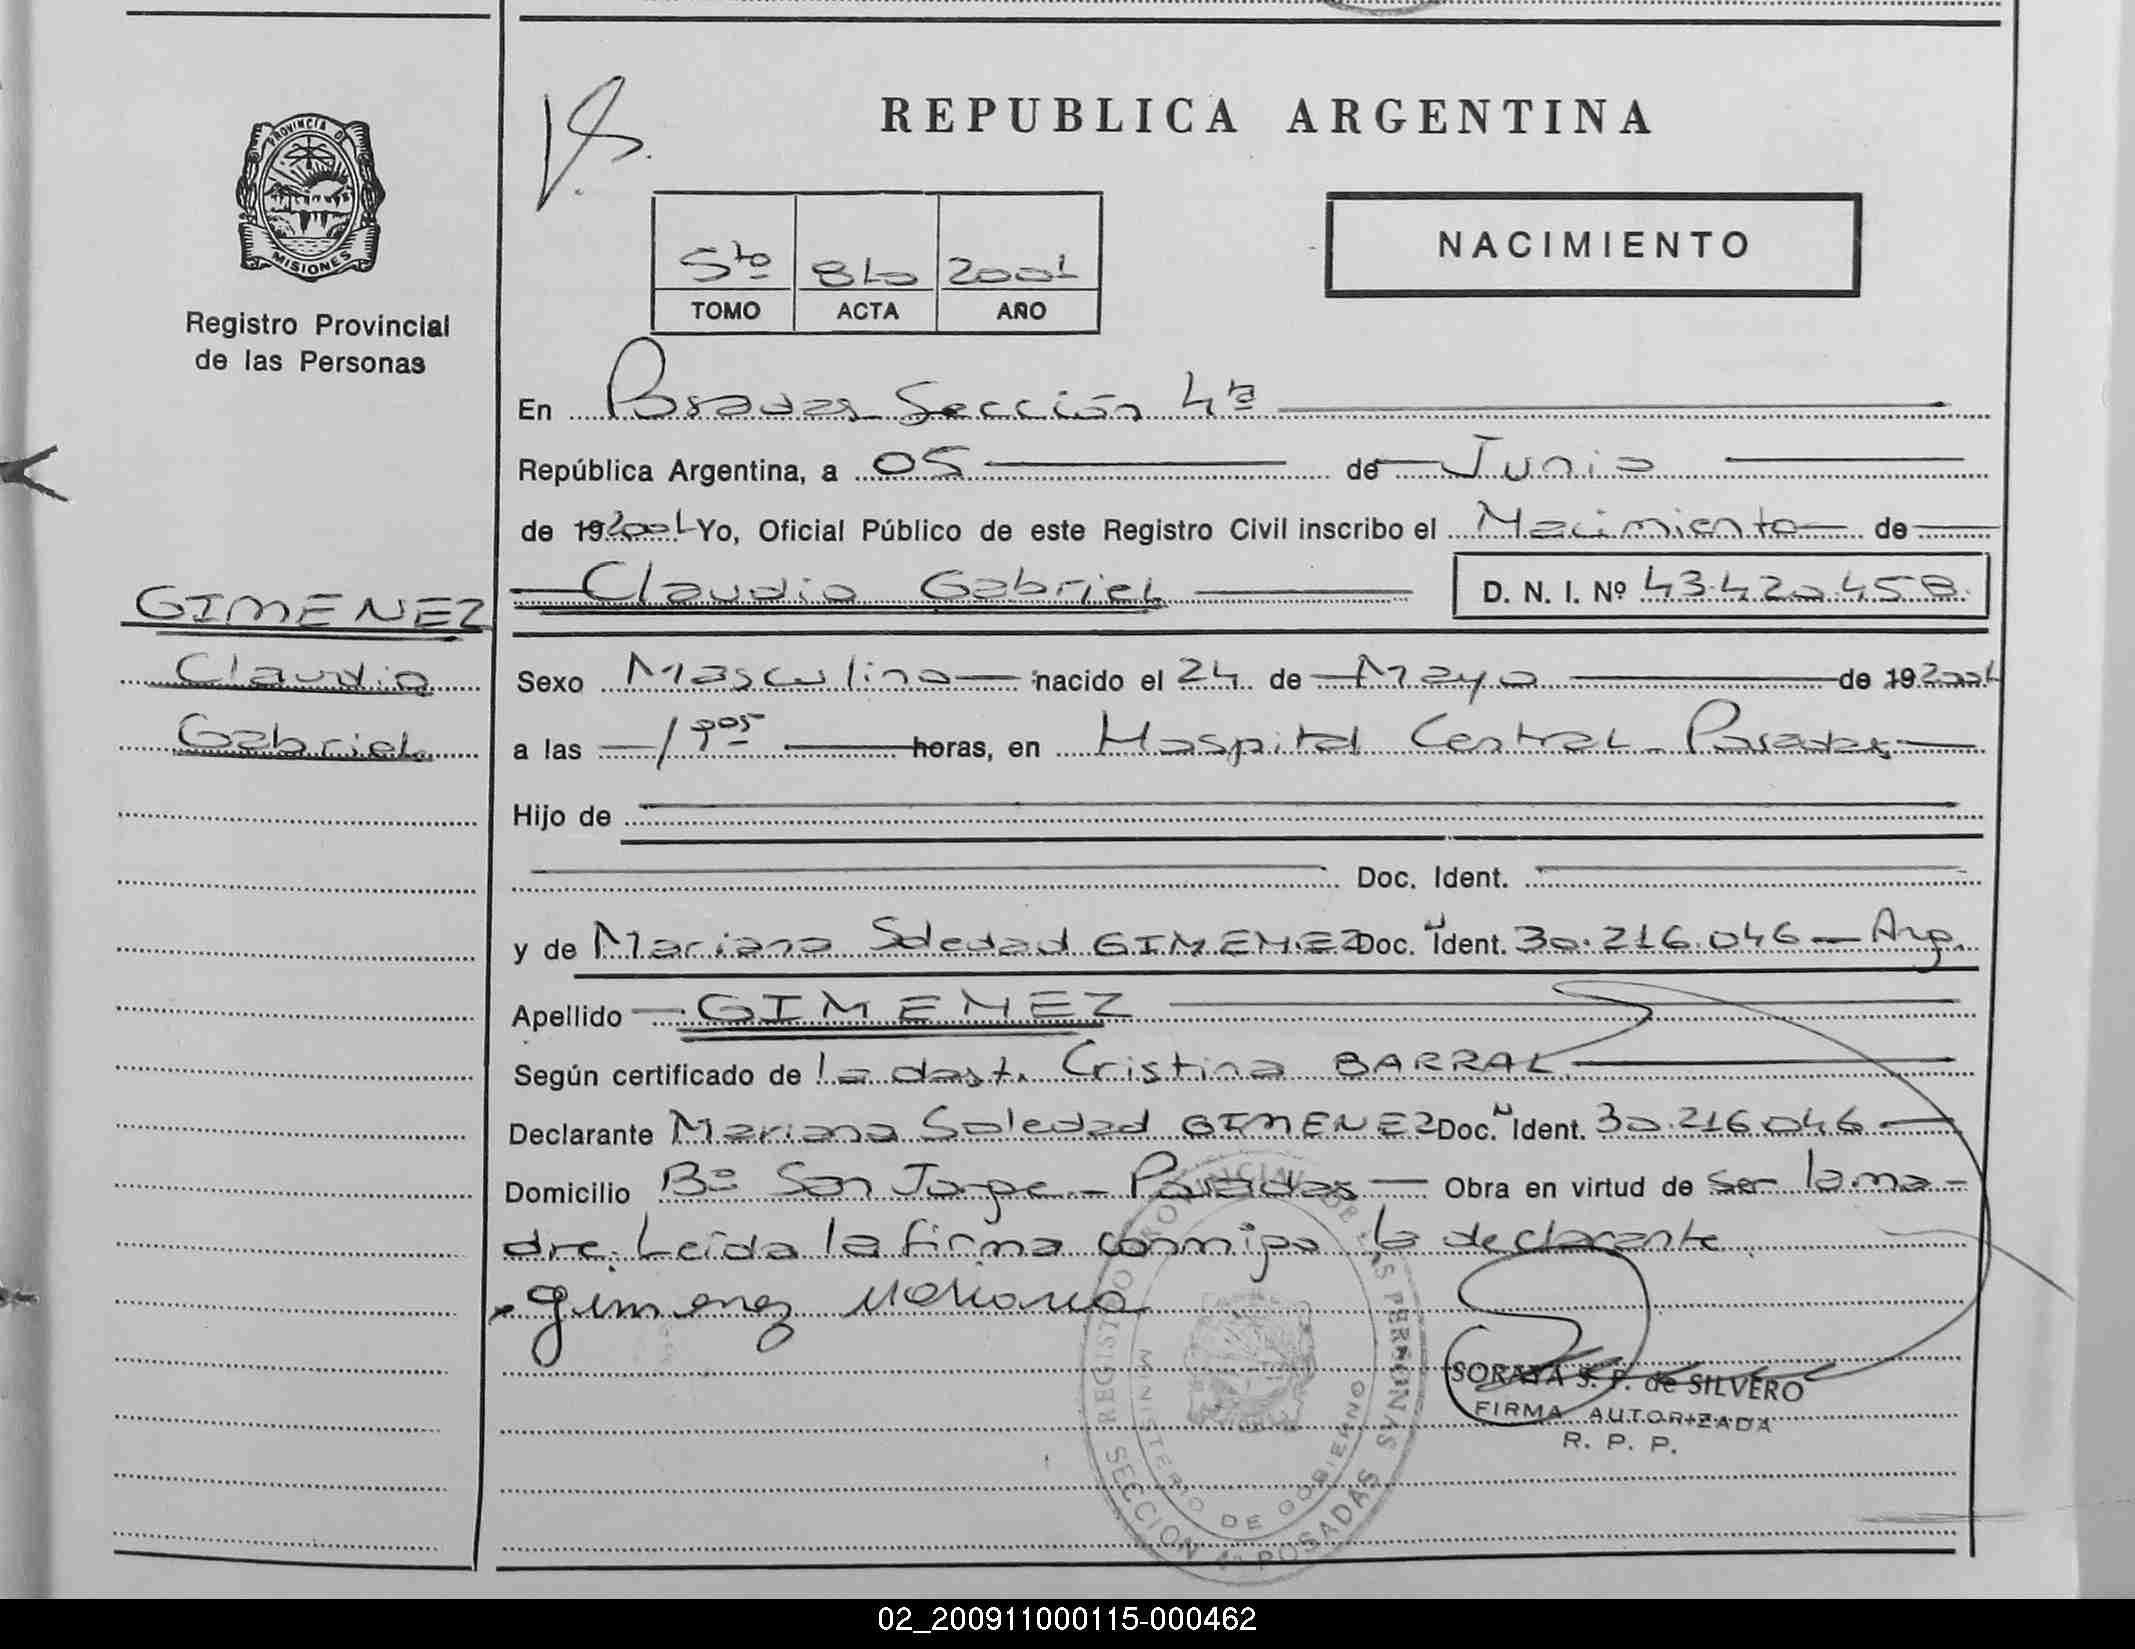 REPUBLICA ARGENTINA
PROVINCIA DE
MISIONES
Registro Provincial
de las Personas
NACIMIENTO
5to 810 2001
TOMO ACTA AÑO
En Posadas Sección 4ta
República Argentina, a 05 de Junio
de 19 2001 Yo, Oficial Público de este Registro Civil inscribo el Nacimiento de
Claudio Gabriel D. N. I. Nº 43.420.458
GIMENEZ
Claudio
Gabriel
Sexo Masculino nacido el 24 de Mayo de 19 2001
a las horas, en Hospital Central Posadas
Hijo de
Doc. Ident.
y de Mariana Soledad GIMENEZ Doc. Ident. 30.216.046 - Arg.
Apellido GIMENEZ
Según certificado de la obst. Cristina BARRAL
Declarante Mariana Soledad GIMENEZ Doc. Ident. 30.216.046
Domicilio Bº San Jorge - Posadas Obra en virtud de ser la ma-
dre. Leida la firma conmigo la declarante
Gimenez Mariana
SORAYA S. F. de SILVERO
FIRMA AUTORIZADA
R. P. P.
REGISTRO PROVINCIAL DE LAS PERSONAS
MINISTERIO DE GOBIERNO
SECCION 4ª POSADAS
02_200911000115-000462